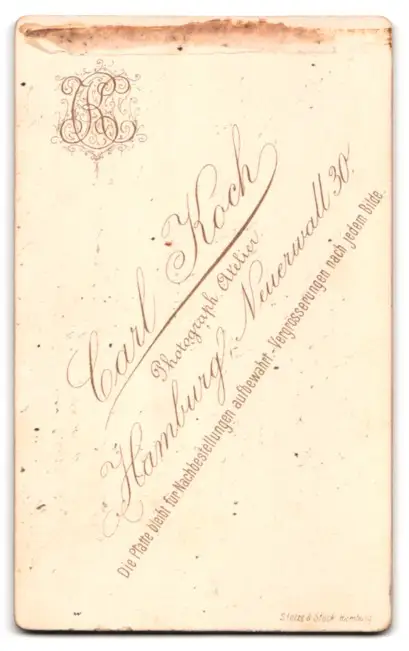 CK
Carl Koch
Photograph. Atelier.
Hamburg, Neuerwall 30.
Die Platte bleibt für Nachbestellungen aufbewahrt.-Vergrösserungen nach jedem Bilde.
Hamburg